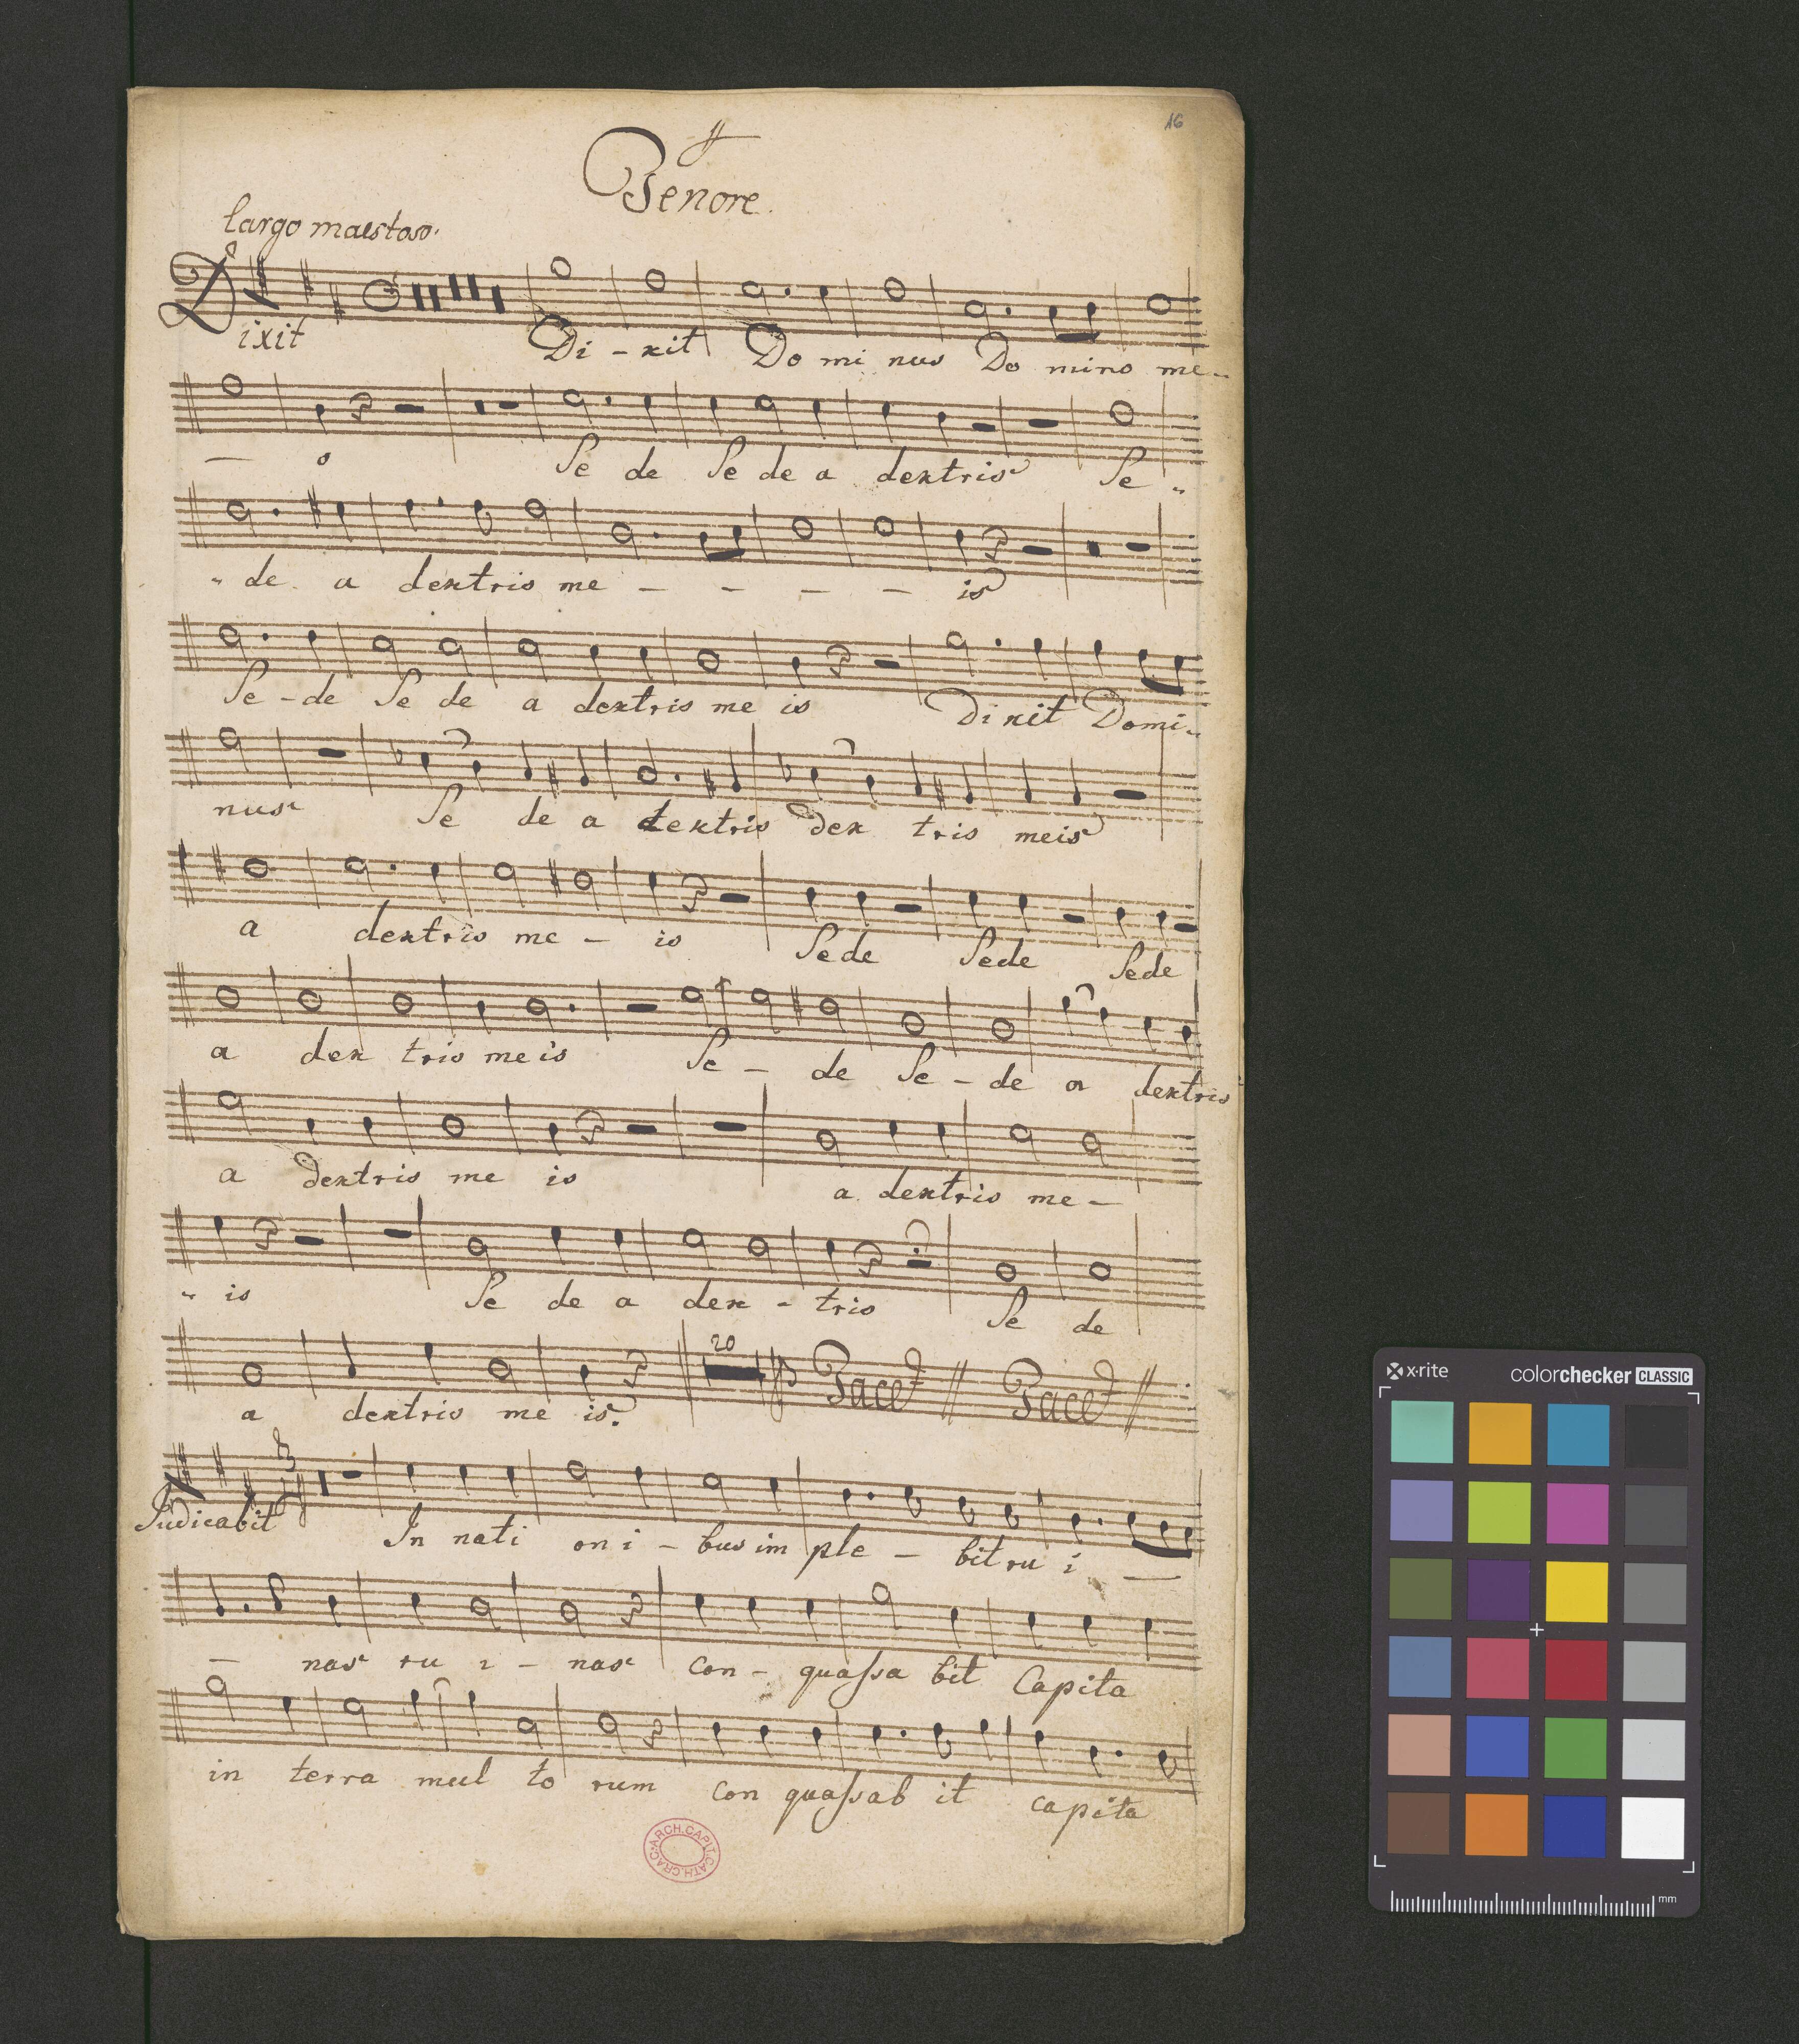 16
Tenore.
largo maestoso.
Dixit Di - xit Do mi nus Do mino me -
- o Se de Se de a dextris Se -
- de a dextris me - - - - is
Se - de Se de a dextris me is Dixit Domi -
nus Se de a dextris dex tris meis
a dextris me - is Sede Sede Sede
a dex tris me is Se - de Se - de a dextris
a dextris me is a dextris me -
- is Se de a dex - tris Se de
a dextris me is. 20 Tacet // Tacet //
Judicabit In nati on i - bus im ple - bit ru i -
- nas ru i - nas con - quaſsa bit Capita
in terra mul to rum con quaſsab it capita
ARCH. CAPIT. CATH. CRAC.
x·rite colorchecker CLASSIC
mm